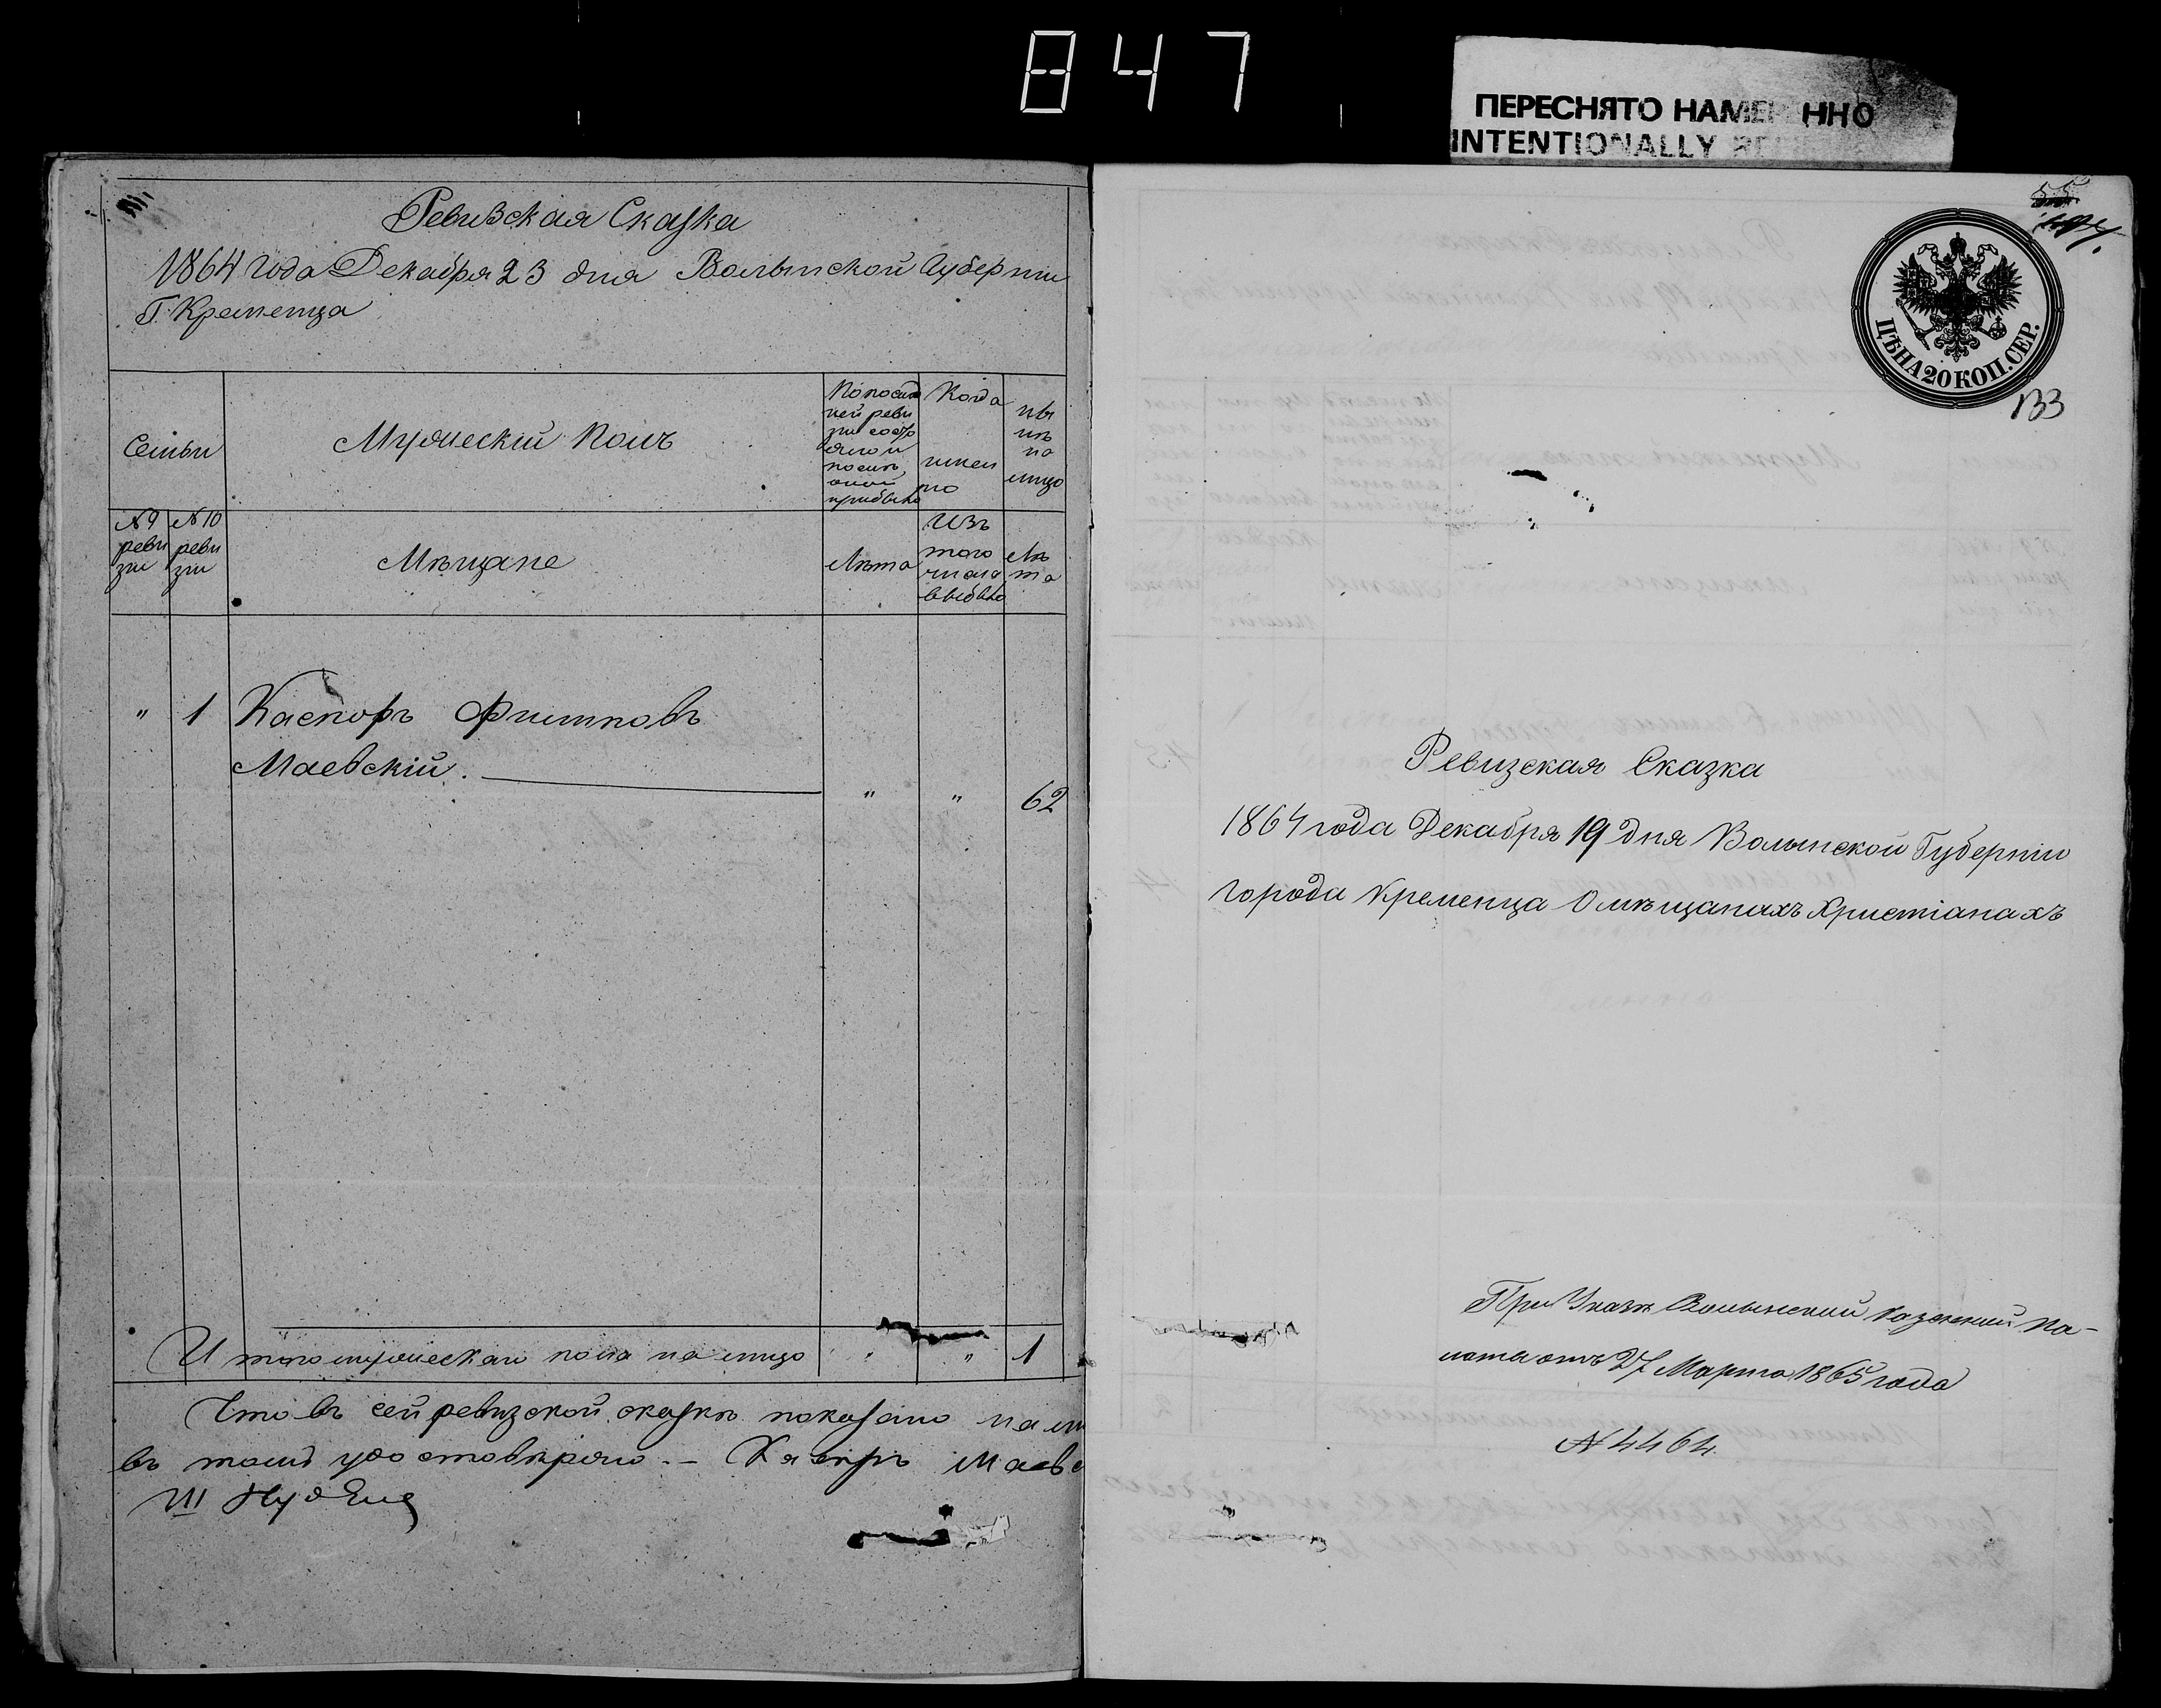 847
ПЕРЕСНЯТО НАМЕР ННО
INTENTIONALLY RE
Ревизская Сказка
1864 года Декабря 23 дня Волынской Губернии
Г. Кременца
Семьи
Мужескій полъ
По послѣд
ней реви
зіи состо
яло и
послѣ
оной
прибыло
Когда
имен
но
ны
нѣ
на
лицо
№ 9
реви
зіи
№ 10
реви
зіи
Мѣщане
Лѣта
Изъ
того
числа
выбыло
Лѣ
та
" 1 Касперъ
Маевскій. " " 62
Итого мужескаго пола на лицо " " 1
Что въ сей ревизской сказкѣ показано на ли
въ томъ удостовѣряю. – Касперъ Маевс
55
ЦѢНА 20 КОП. СЕР.
133
Ревизская Сказка
1864 года Декабря 19 дня Волынской Губерніи
города Кременца О мѣщанахъ Христіанахъ
При Указѣ Волынской Казенной Па-
латы отъ 27 Марта 1865 года
№ 4464.